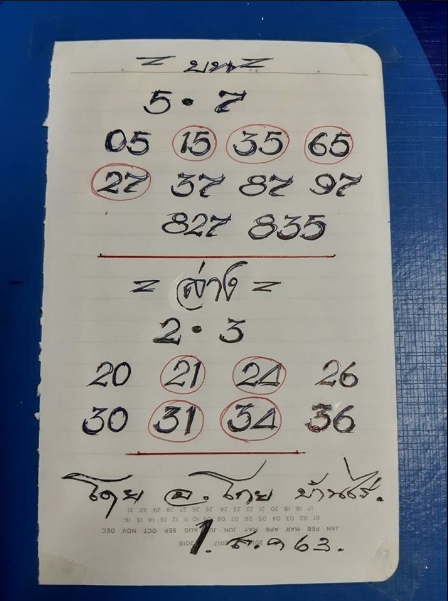 = บน =
5 . 7
05 15 35 65
27 37 87 97
827 835
= ล่าง =
2 . 3
20 21 24 26
30 31 34 36
โดย อ. โทย บ้านไร่.
1. ส.ค 63.